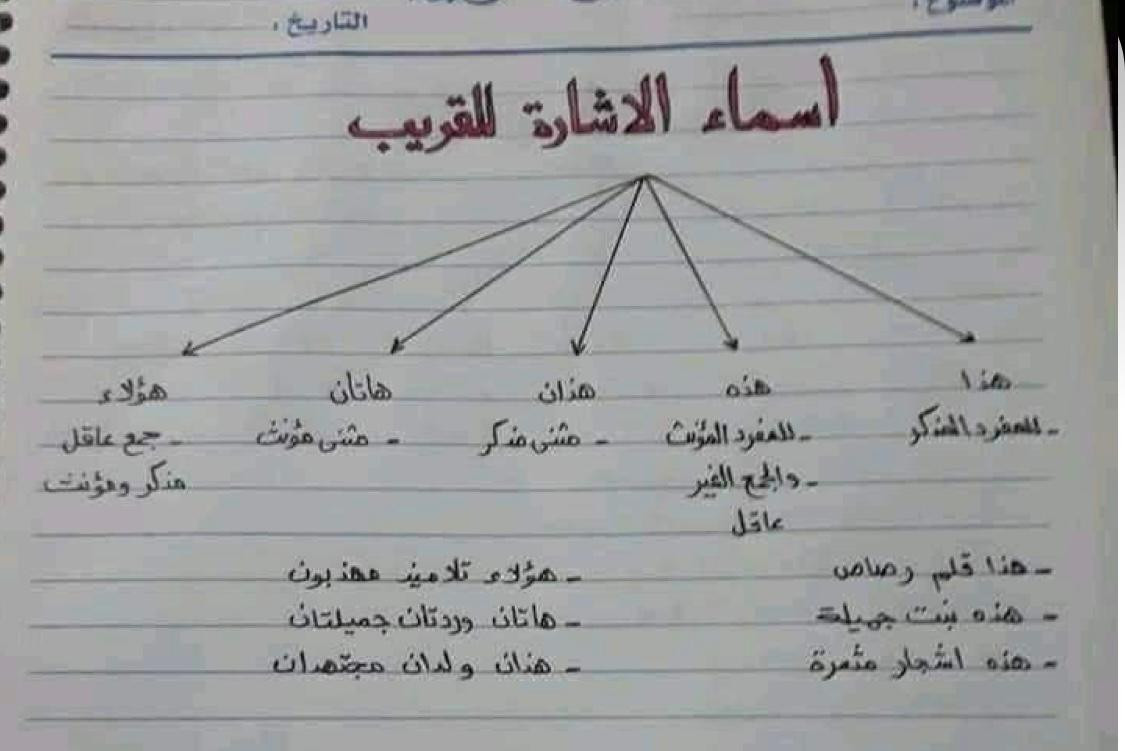 الموضوع :
التاريخ :
اسماء الاشارة للقريب
هذا هذه هذان هاتان هؤلاء
- للمفرد المذكر - للمفرد المؤنث - مثنى مذكر - مثنى مؤنث - جمع عاقل
- والجمع الغير مذكر ومؤنث
عاقل
- هذا قلم رصاص - هؤلاء تلاميذ مهذبون
- هذه بنت جميلة - هاتان وردتان جميلتان
- هذه اشجار مثمرة - هذان ولدان مجتهدان